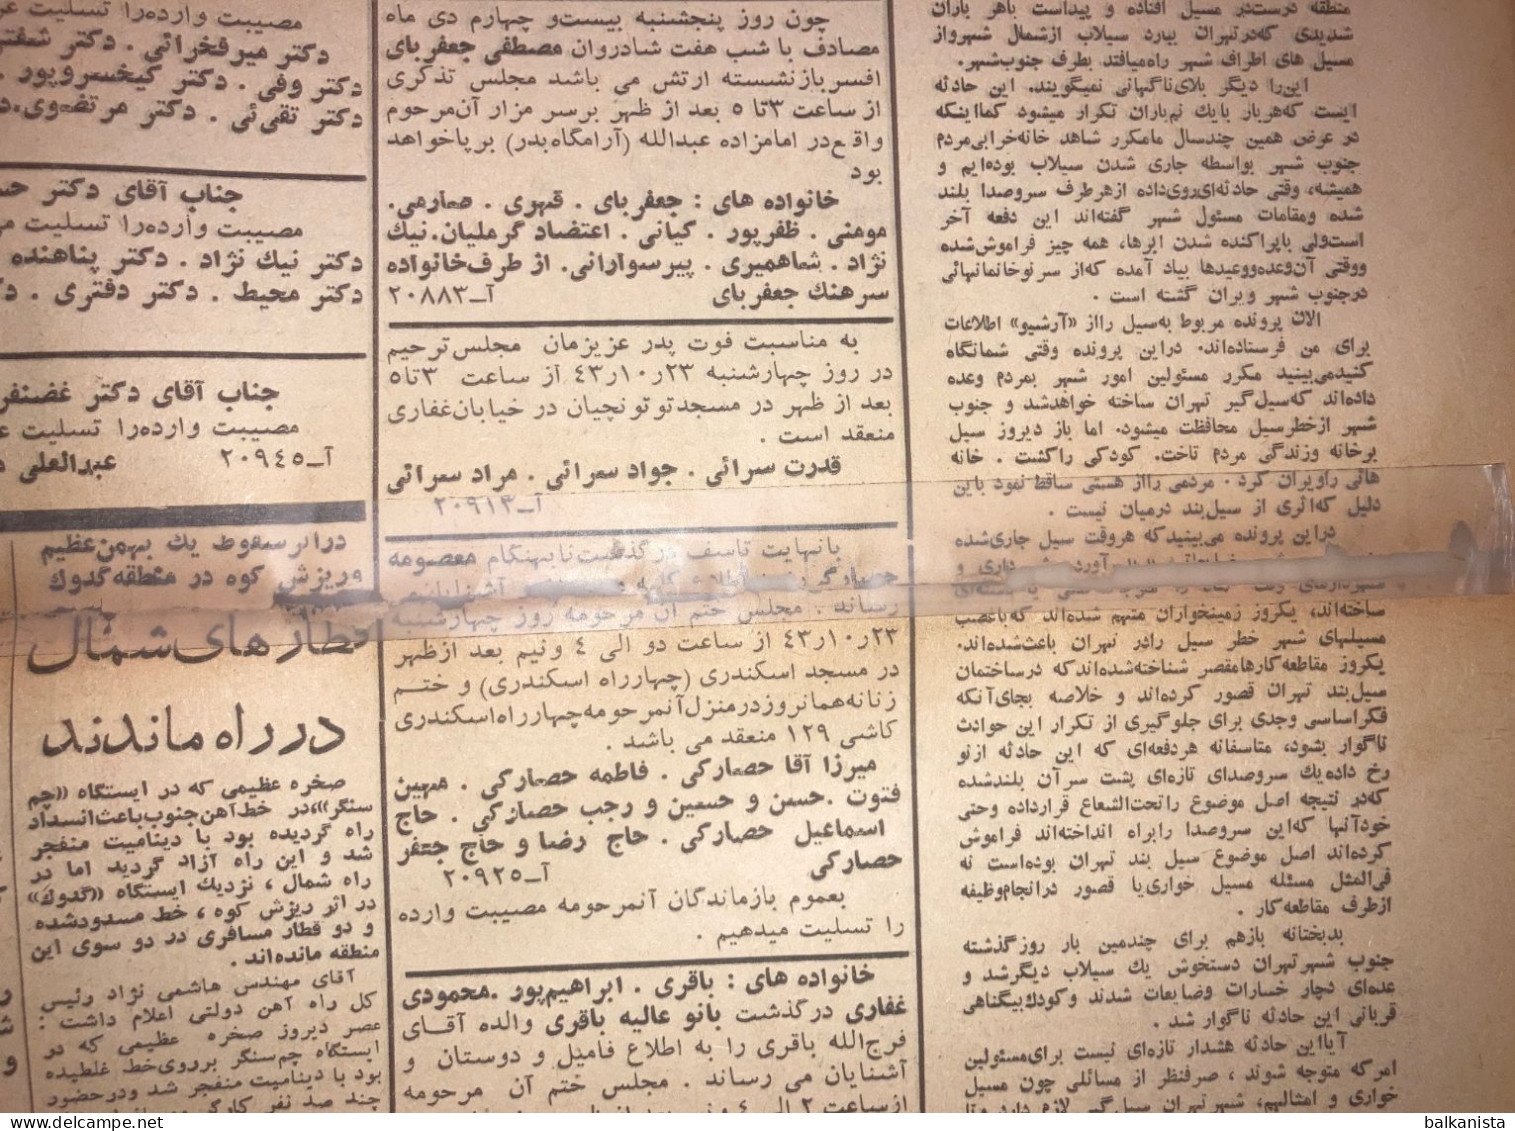 منطقه درست‌در مسیل افتاده و پیداست باهر باران
شدیدی که‌در‌تهران ببارد سیلاب از‌شمال شهرو‌از
مسیل های اطراف شهر راه‌میافتد بطرف جنوب‌شهر.
این‌را دیگر بلای‌ناگهانی نمیگویند. این حادثه
ایست که‌هربار بایك نم‌باران تکرار میشود کمااینکه
در عرض همین چندسال مامکرر شاهد خانه‌خرابی‌مردم
جنوب شهر بواسطه جاری شدن سیلاب بوده‌ایم و
همیشه، وقتی حادثه‌ای‌روی‌داده از‌هرطرف سروصدا بلند
شده ومقامات مسئول شهر گفته‌اند این دفعه آخر
است‌ولی باپراکنده شدن ابرها، همه چیز فراموش‌شده
ووقتی آن‌وعده‌ووعیدها بیاد آمده که‌از سرنو‌خانمانهائی
در‌جنوب شهر ویران گشته است .
الان پرونده مربوط به‌سیل را‌از «آرشیو» اطلاعات
برای من فرستاده‌اند. در‌این پرونده وقتی شما‌نگاه
کنید‌می‌بینید مکرر مسئولین امور شهر بمردم وعده
داده‌اند که‌سیل‌گیر تهران ساخته خواهد‌شد و جنوب
شهر از‌خطر‌سیل محافظت میشود. اما باز دیروز سیل
بر‌خانه وزندگی مردم تاخت. کودکی را‌کشت . خانه
هائی را‌ویران کرد . مردمی را‌از هستی ساقط نمود باین
دلیل که‌اثری از سیل‌بند درمیان نیست .
در‌این پرونده می‌بینید‌که هروقت سیل جاری‌شده
ساخته‌اند، یکروز زمینخواران متهم شده‌اند که‌با‌غصب
مسیلهای شهر خطر سیل را‌در تهران باعث‌شده‌اند.
یکروز مقاطعه‌کارها‌مقصر شناخته‌شده‌اند‌که در‌ساختمان
سیل‌بند تهران قصور کرده‌اند و خلاصه بجای‌آنکه
فکر‌اساسی وجدی برای جلوگیری از تکرار این حوادث
ناگوار بشود، متاسفانه هردفعه‌ای که این حادثه از‌نو
رخ داده‌یك سروصدای تازه‌ای پشت سر‌آن بلند‌شده
که‌در نتیجه اصل موضوع را‌تحت‌الشعاع قرار‌داده وحتی
خود‌آنها که‌این سروصدا را‌براه انداخته‌اند فراموش
کرده‌اند اصل موضوع سیل بند تهران بوده‌است نه
فی‌المثل مسئله مسیل خواری‌یا قصور در‌انجام‌وظیفه
از‌طرف مقاطعه‌کار .
بدبختانه بازهم برای چندمین بار روز‌گذشته
جنوب شهر‌تهران دستخوش یك سیلاب دیگر‌شد و
عده‌ای دچار خسارات وضایعات شدند و‌کودك‌بیگناهی
قربانی این حادثه ناگوار شد .
آیا‌این حادثه هشدار تازه‌ای نیست برای‌مسئولین
امر‌که متوجه شوند ، صرفنظر از مسائلی چون مسیل
خواری و امثالهم، شهر‌تهران سیل‌گیر لازم دارد
چون روز پنجشنبه بیست‌و چهارم دی ماه
مصادف با شب هفت شادروان مصطفی جعفربای
افسر‌بازنشسته ارتش می باشد مجلس تذکری
از ساعت ۳تا ۵ بعد از ظهر برسر مزار آن‌مرحوم
واقع‌در امامزاده عبدالله (آرامگاه‌بدر) برپا‌خواهد
بود
خانواده های : جعفربای . قهری . صارمی.
مومنی . ظفرپور . کیانی . اعتضاد گرملیان. نیك
نژاد . شاهمیری . پیرسوارانی. از طرف‌خانواده
سرهنك جعفربای آ‌ـ۲۰۸۸۳
به مناسبت فوت پدر عزیزمان مجلس‌ترحیم
در روز چهارشنبه ۲۳ر۱۰ر۴۳ از ساعت ۳تا۵
بعد از ظهر در مسجد‌توتونچیان در خیابان‌غفاری
منعقد است .
قدرت سرائی . جواد سرائی . مراد سرائی
آ‌ـ۲۰۹۱۳
بانهایت تاسف درگذشت نابهنگام معصومه
رساند . مجلس ختم آن مرحومه روز چهارشنبه
۲۳ر۱۰ر۴۳ از ساعت دو الی ۴ ونیم بعد ازظهر
در مسجد اسکندری (چهارراه اسکندری) و ختم
زنانه‌همانروز‌در‌منزل‌آنمرحومه‌چهارراه‌اسکندری
کاشی ۱۲۹ منعقد می باشد .
میرزا آقا حصارکی . فاطمه حصارکی . مهین
فتوت . حسن و حسین و رجب حصارکی . حاج
اسماعیل حصارکی . حاج رضا و حاج جعفر
حصارکی آ‌ـ۲۰۹۲۵
بعموم بازماندگان آنمرحومه مصیبت وارده
را تسلیت میدهیم .
خانواده های : باقری . ابراهیم‌پور . محمودی
غفاری درگذشت بانو عالیه باقری والده آقای
فرج‌الله باقری را به اطلاع فامیل و دوستان و
آشنایان می رساند . مجلس ختم آن مرحومه
مصیبت وارده‌را تسلیت
دکتر میرفخرائی . دکتر
دکتر وفی . دکتر کیخسروپور .
دکتر تقی‌ئی . دکتر مرتضوی.
جناب آقای دکتر
مصیبت وارده‌را تسلیت
دکتر نیك نژاد . دکتر پناهنده
دکتر محیط . دکتر دفتری .
جناب آقای دکتر غضنفر
مصیبت وارده‌را تسلیت
آ‌ـ۲۰۹۴۵ عبدالعلی
دراثر سقوط یك بهمن عظیم
وریزش کوه در منطقه گدوك
قطارهای شمال
در راه ماندند
صخره عظیمی که در ایستگاه «چم
سنگر» در خط‌آهن جنوب‌باعث‌انسداد
راه گردیده بود با دینامیت منفجر
شد و این راه آزاد گردید اما در
راه شمال ، نزدیك ایستگاه «گدوك»
در اثر ریزش کوه ، خط مسدود‌شده
و دو قطار مسافری در دو سوی این
منطقه مانده‌اند .
آقای مهندس هاشمی نژاد رئیس
کل راه آهن دولتی اعلام داشت :
عصر دیروز صخره عظیمی که در
ایستگاه چم‌سنگر برروی‌خط غلطیده
بود با دینامیت منفجر شد ودر‌حضور
چند صد نفر
balkanista